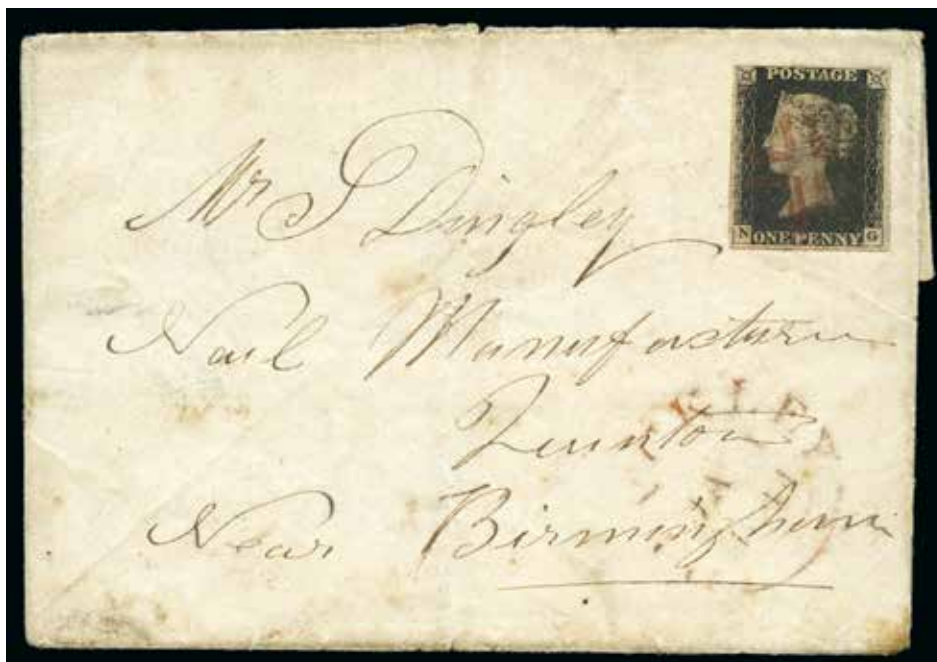 POSTAGE
N ONE PENNY G
Mr S Dingley
Nail Manufacturer
Quinton
Near Birmingham